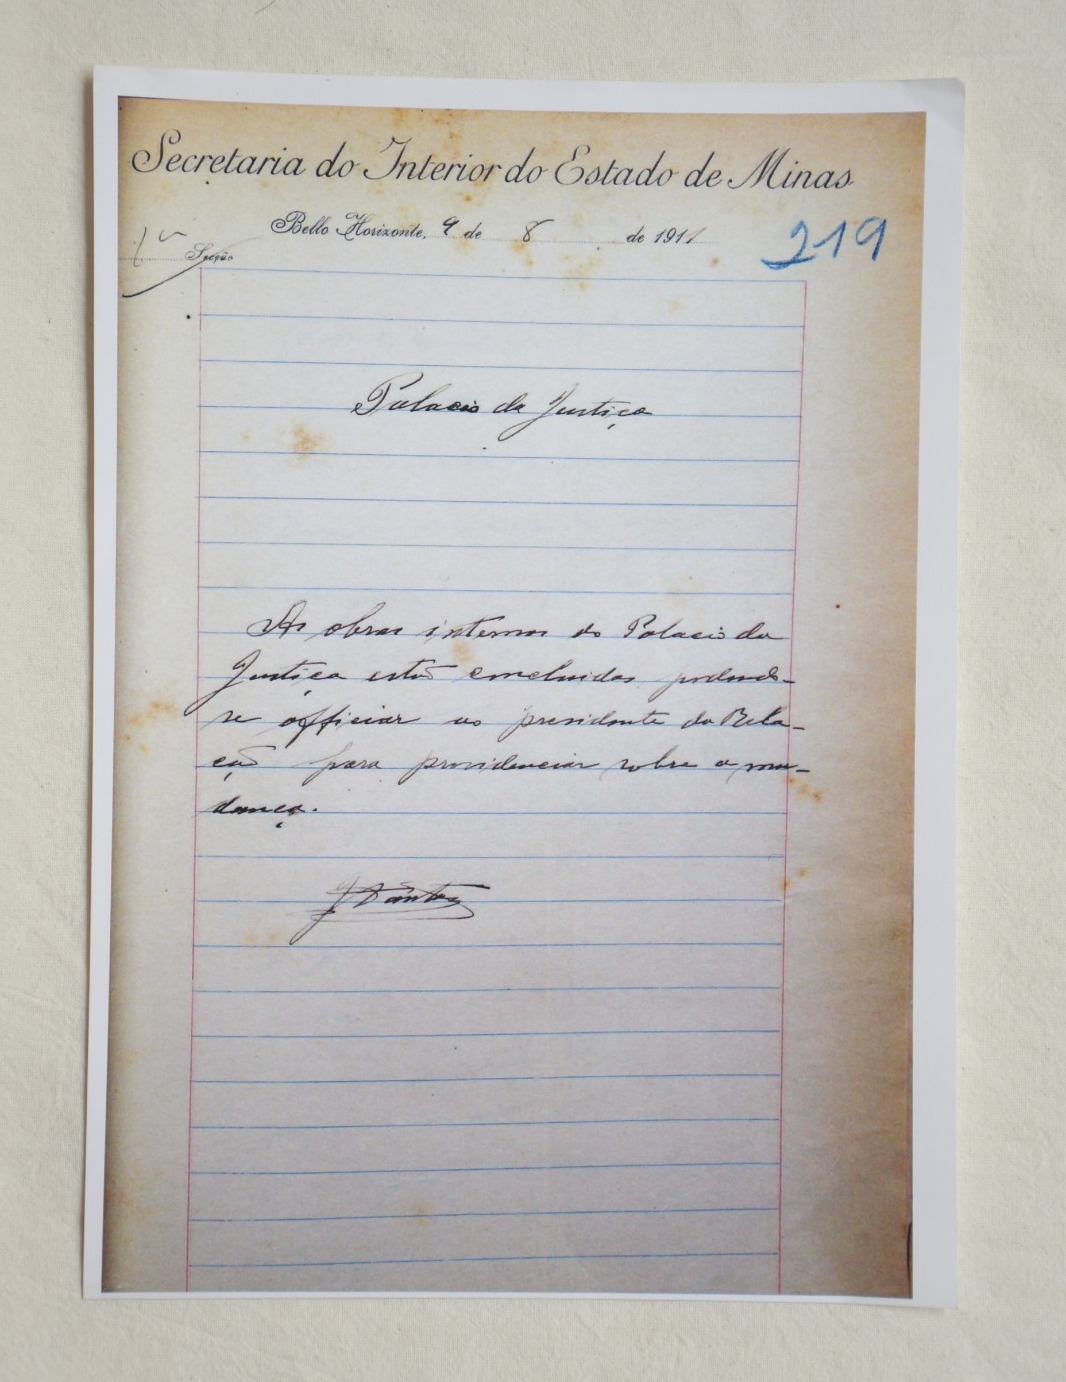 Secretaria do Interior do Estado de Minas
Bello Horizonte, 9 de 8 de 1911
219
1ª Secção
Palacio da Justiça
As obras internas do Palacio da
Justiça estão concluidas, podendo-
se officiar ao presidente da Rela-
ção para providenciar sobre a mu-
dança.
J Dantas